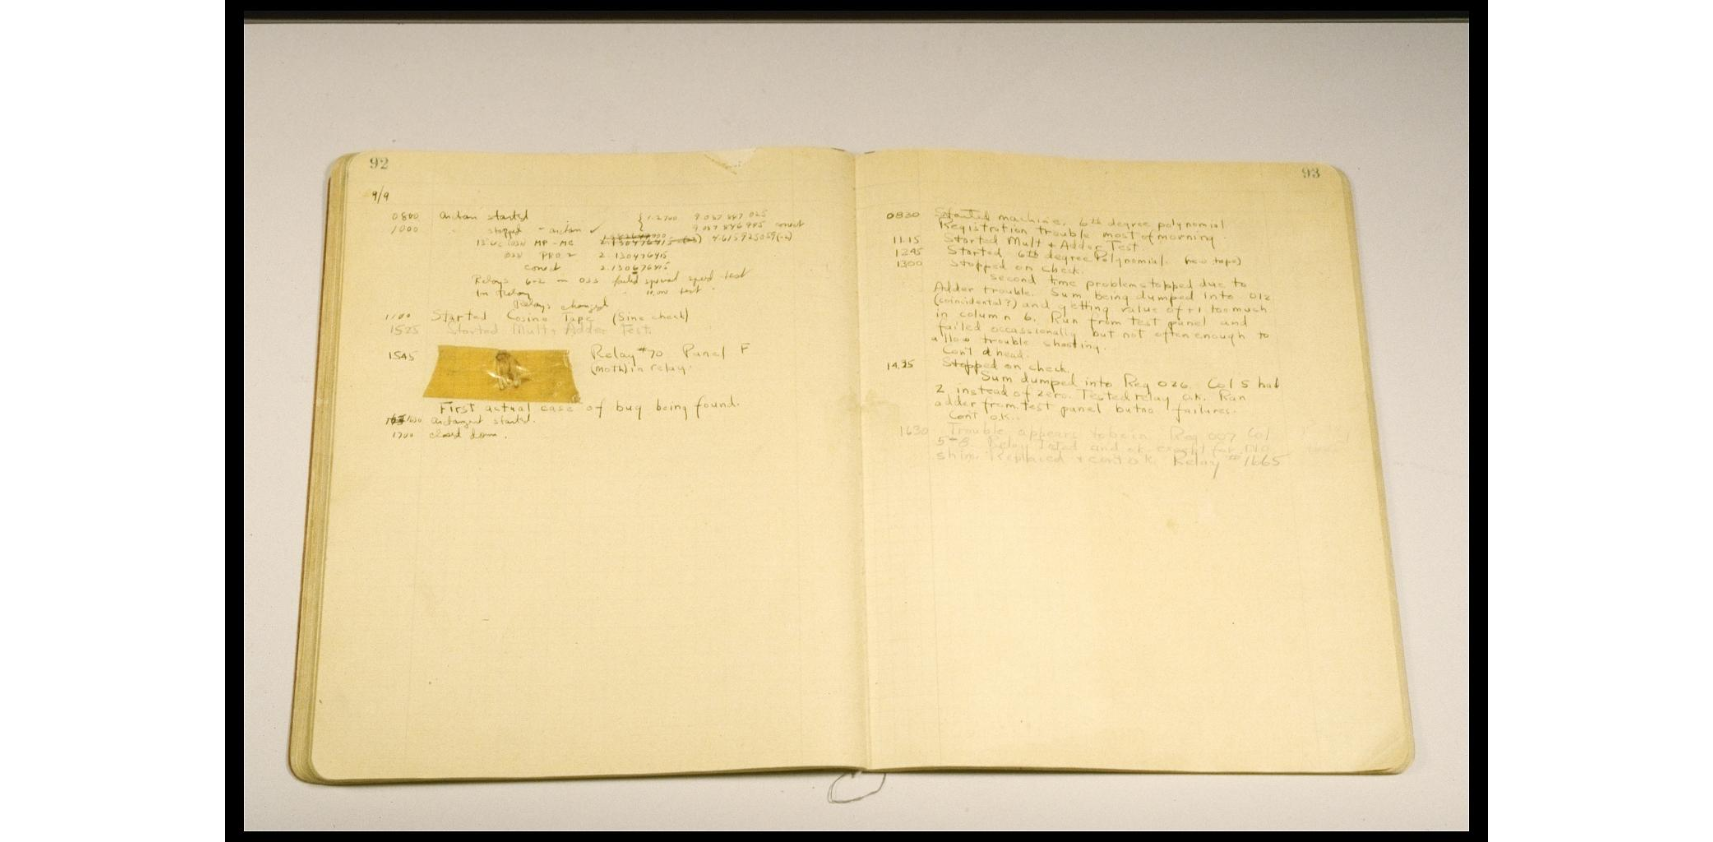 92
9/9
0800 started
1000 stopped - ✓
13" MP-MC
PRO 2 2.130476415
correct 2.130676415
Relays 6-2 in 033 failed special speed test
in Relay test.
Relays changed
1100 Started Cosine Tape (Sine check)
1525 Started Mult + Adder Test.
1545 Relay #70 Panel F
(moth) in relay.
First actual case of bug being found.
started.
1700 closed down.
93
0830 Started machine. 6th degree polynomial
Registration trouble most of morning.
1115 Started Mult + Adder Test
1245 Started 6th degree Polynomial. (new tape)
1300 Stopped on check.
Second time problem stopped due to
Adder trouble. Sum being dumped into 012
(coincidental?) and getting value of +1 too much
in column 6. Run from test panel and
failed occassionally but not often enough to
allow trouble shooting.
Con't ahead.
1425 Stopped on check
Sum dumped into Reg 026. Col 5 had
2 instead of zero. Tested relay ok. Ran
adder from test panel but no failures.
Con't o.k.
1630 Trouble appears to be in Reg 007 Col
Relay Tested and ok.
Replaced + con't o.k. Relay 1665